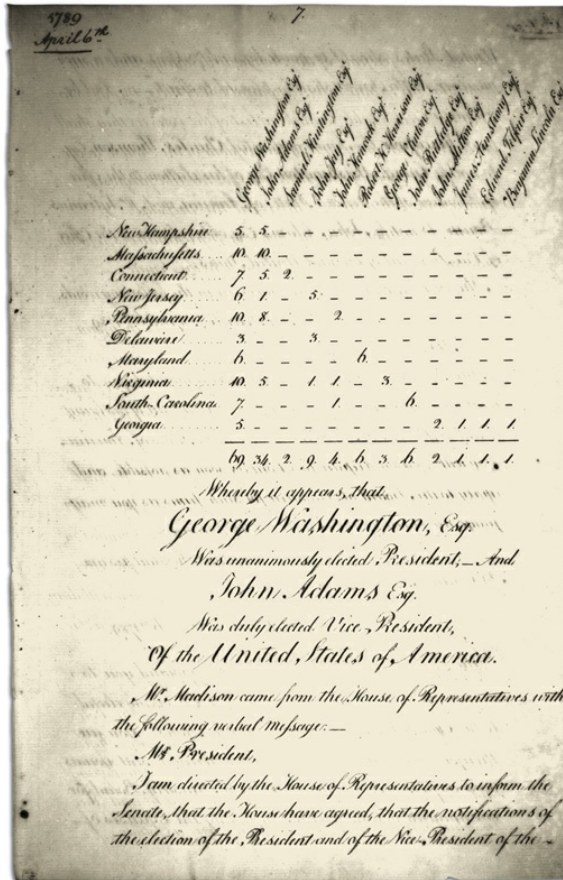 1789
7.
April 6th
George Washington Esqr
John Adams Esqr
Samuel Huntington Esqr
John Jay Esqr
John Hancock Esqr
Robert H. Harrison Esqr
George Clinton Esqr
John Rutledge Esqr
John Milton Esqr
James Armstrong Esqr
Edward Telfair Esqr
Benjamin Lincoln Esqr
New Hampshire 5. 5. – – – – – – – – – –
Massachusetts 10. 10. – – – – – – – – – –
Connecticut 7. 5. 2. – – – – – – – – –
New Jersey 6. 1. – 5. – – – – – – – –
Pennsylvania 10. 8. – – 2. – – – – – – –
Delaware 3. – – 3. – – – – – – – –
Maryland 6. – – – – 6. – – – – – –
Virginia 10. 5. – 1. 1. – 3. – – – – –
South Carolina 7. – – – 1. – – 6. – – – –
Georgia 5. – – – – – – – 2. 1. 1. 1.
69. 34. 2. 9. 4. 6. 3. 6. 2. 1. 1. 1.
Whereby it appears, that
George Washington, Esq.
Was unanimously elected President,— And
John Adams Esq.
Was duly elected Vice-President,
Of the United States of America.
Mr. Madison came from the House of Representatives with
the following verbal message:—
Mr. President,
I am directed by the House of Representatives to inform the
Senate, that the House have agreed, that the notifications of
the election of the President and of the Vice-President of the –